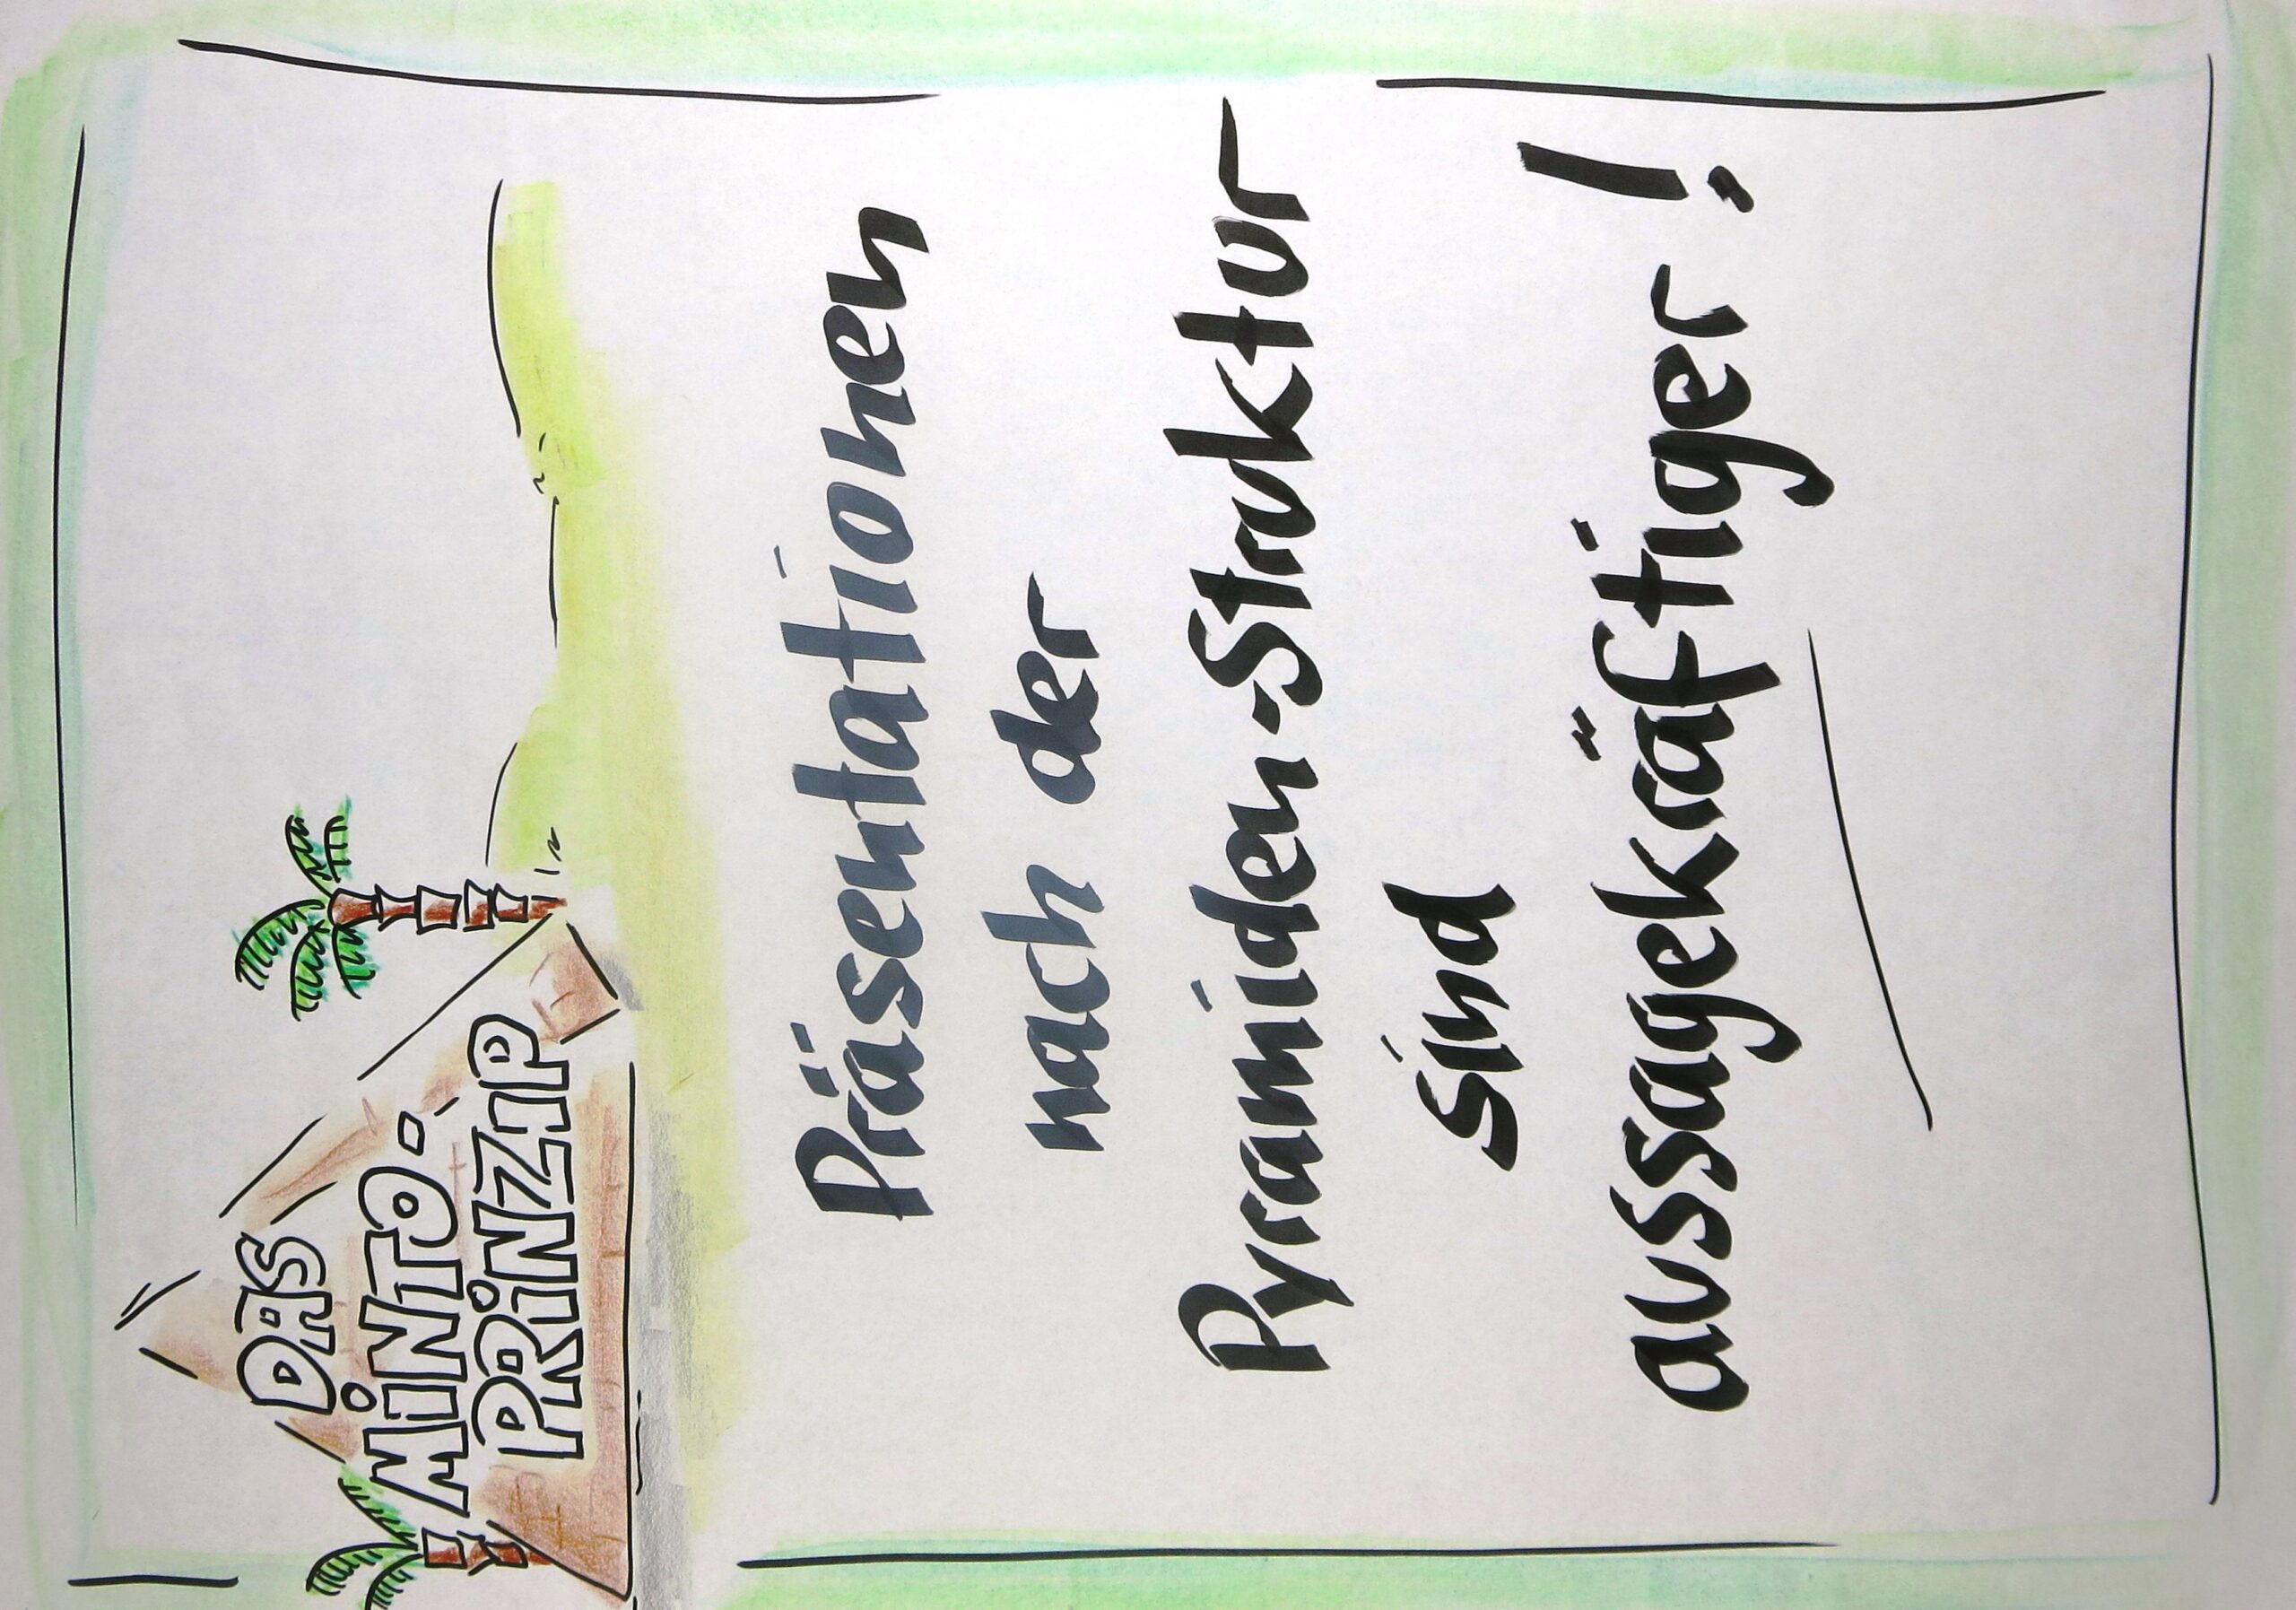 DAS
MiNTO-
PRiNZiP
Präsentationen
nach der
Pyramiden-Struktur
sind
aussagekräftiger!